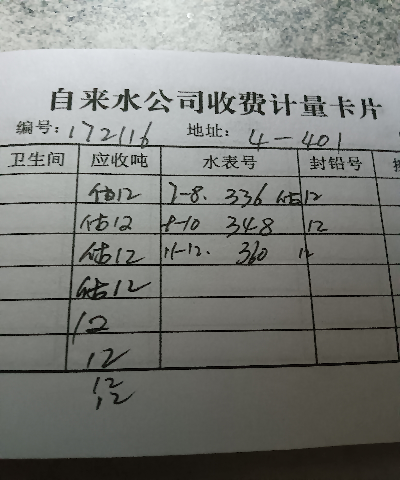 自来水公司收费计量卡片
编号: 172116 地址: 4-401
卫生间 应收吨 水表号 封铅号
估12 7-8. 336 估12
估12 8-10 348 12
估12 11-12. 360 12
估12
12
12
12
12